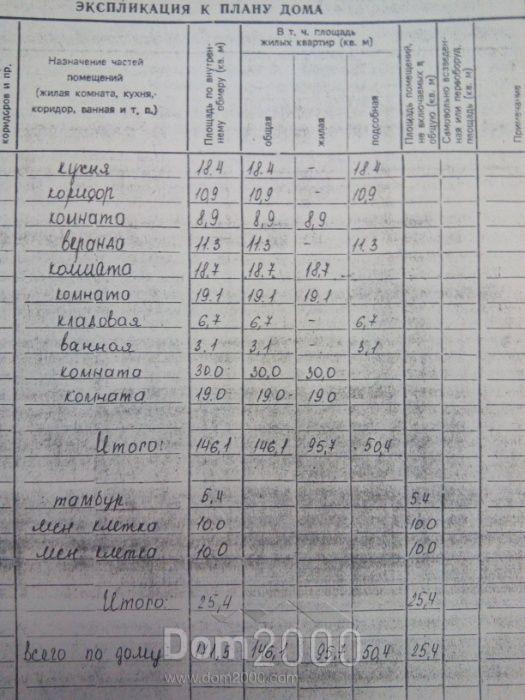 ЭКСПЛИКАЦИЯ К ПЛАНУ ДОМА
коридоров и пр.
Назначение частей
помещений
(жилая комната, кухня,
коридор, ванная и т. п.)
Площадь по внутрен-
нему обмеру (кв. м)
В т. ч. площадь
жилых квартир (кв. м)
общая
жилая
подсобная
Площадь помещений,
не включаемых в
общую (кв. м)
Самовольно возведен-
ная или переоборуд.
площадь (кв. м)
Примечание
кухня 18.4 18.4 - 18.4
коридор 10,9 10,9 - 10,9
комната 8,9 8,9 8,9
веранда 11.3 11.3 - 11.3
комната 18.7 18.7 18,7
комната 19.1 19.1 19.1
кладовая 6,7 6,7 - 6,7
ванная 3.1 3,1 - 3,1
комната 30.0 30,0 30,0
комната 19,0 19,0 19,0
Итого: 146,1 146,1 95,7 50,4
тамбур 5.4 5.4
мен клетка 10.0 10.0
мен клетка 10.0 10,0
Итого: 25,4 25,4
всего по дому 146,1 95,7 50,4 25,4
Dom2000
www.dom2000.com